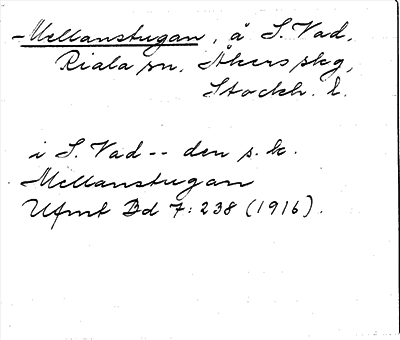 -Mellanstugan, å S. Vad,
Riala sn. Åkers skg,
Stockh. l.
i S. Vad -- den s. k.
Mellanstugan
Ufmt Bd 7: 238 (1916).